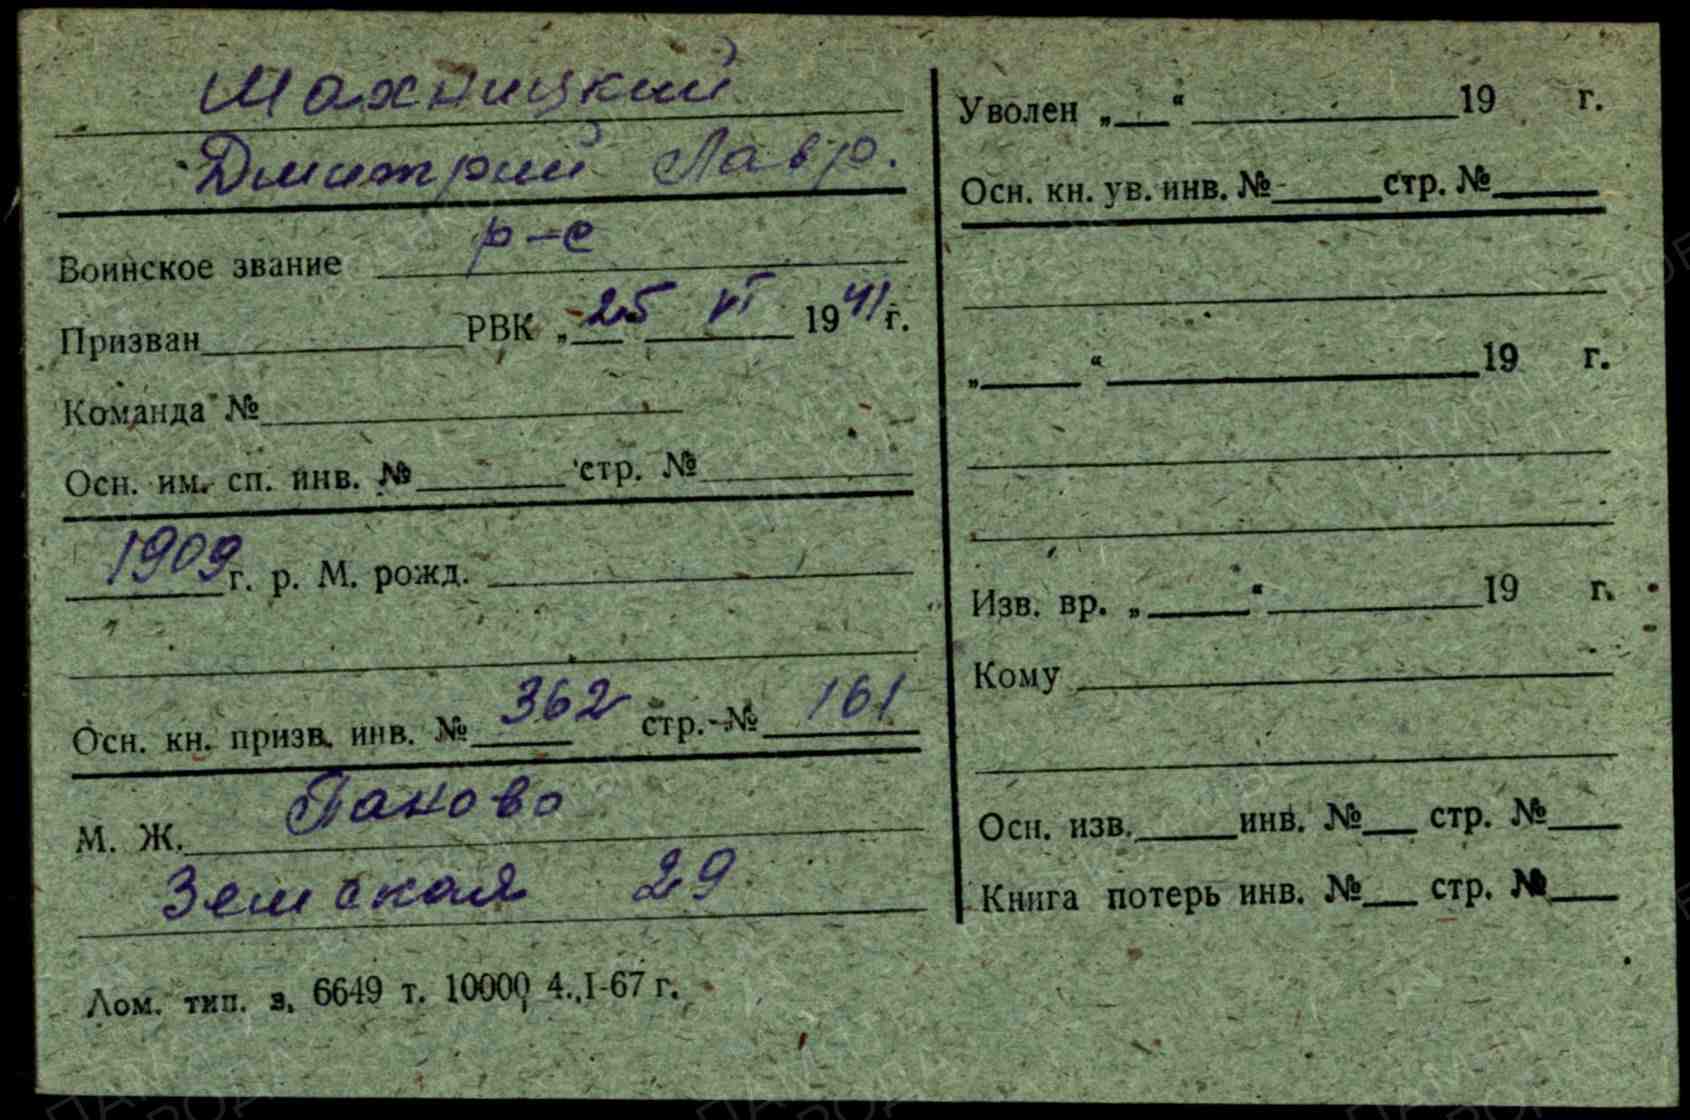 Шахницкий
Дмитрий Лавр.
Воинское звание р-е
Призван РВК „25 VI 1941г.
Команда №
Осн. им. сп. инв. № стр. №
1909 г. р. М. рожд.
Осн. кн. призв. инв. № 362 стр. № 161
М. Ж. Паново
Земская 29
Лом. тип. з. 6649 т. 10000 4.I-67 г.
Уволен „ “ 19 г.
Осн. кн. ув. инв. № стр. №
„ “ 19 г.
Изв. вр. „ “ 19 г.
Кому
Осн. изв. инв. № стр. №
Книга потерь инв. № стр. №